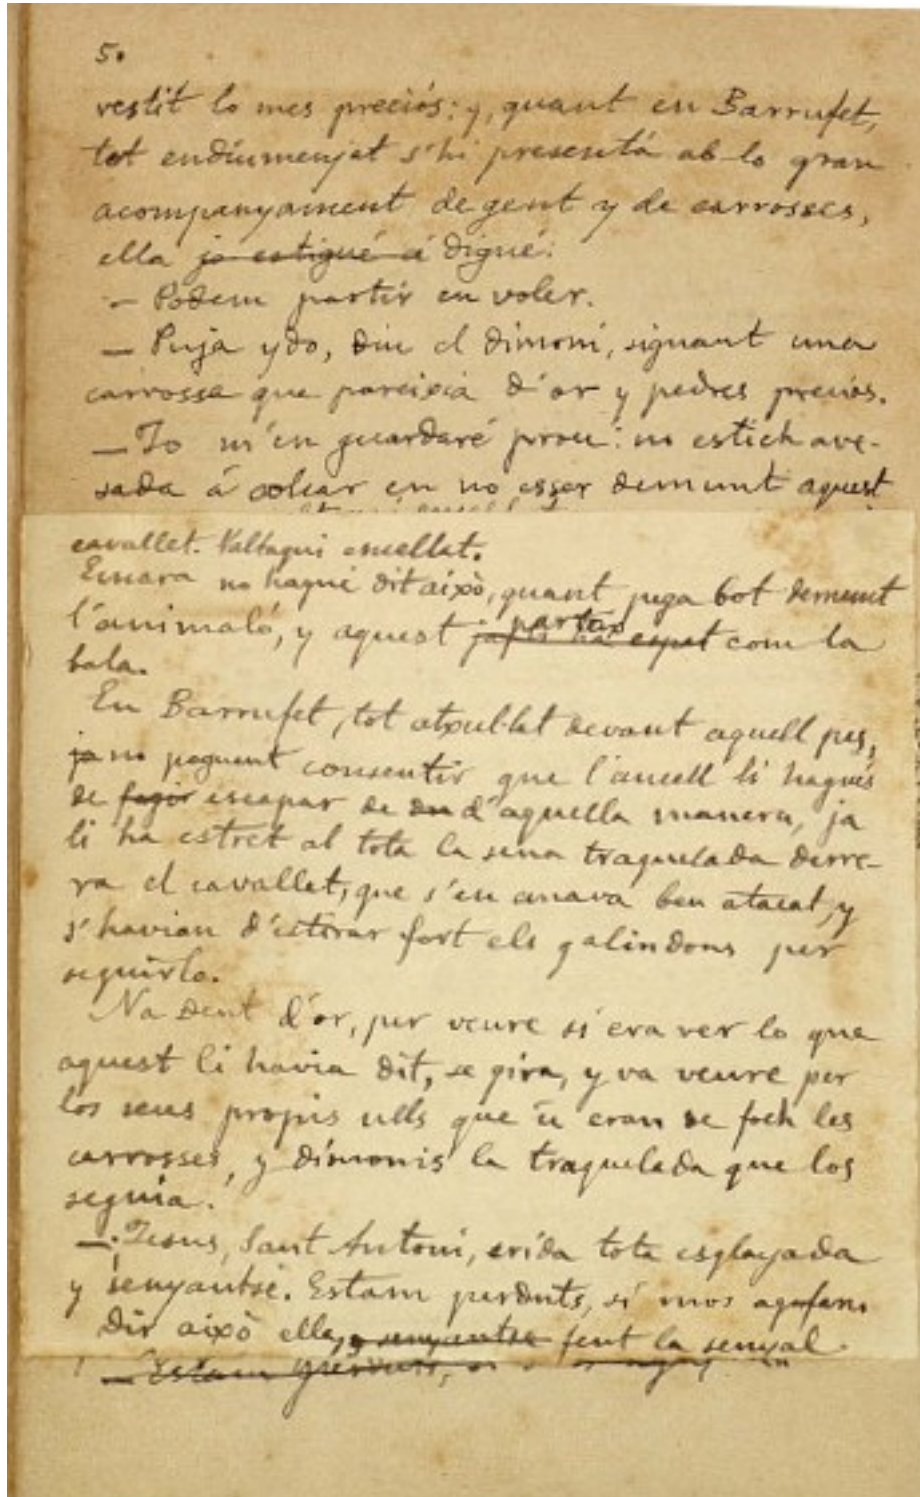 5.
vestit lo mes preciós: y, quant en Barrufet,
tot endiumenjat s'hi presentá ab lo gran
acompanyament de gent y de carrosses,
ella ja estigué á digué:
— Podem partir en voler.
— Puja ydo, diu el dimoni, signant una
carrossa que pareixia d'or y pedres precios.
— Jo m'en guardaré prou: no estich ave-
sada á colcar en no esser demunt aquest
cavallet. Valtaqui ensellat.
Encara no hagué dit aixó, quant pega bot demunt
l'animaló, y aquest partex com la
bala.
En Barrufet, tot atxul·lat devant aquell pas,
ja no poguent consentir que l'aucell li hagués
de fogir escapar de d'aquella manera, ja
li ha estret ab tota la seua traquelada derre-
ra el cavallet, que s'en anava ben atacat, y
s'havian d'estirar fort els galindons per
seguirlo.
Na Dent d'or, per veure si era ver lo que
aquest li havia dit, se gira, y va veure per
los seus propis ulls que eran de foch les
carrosses, y dimonis la traquelada que los
seguia.
— ¡Jesus, Sant Antoni, crida tota esglayada
y senyantse. Estam perduts, si mos agafam
Dir aixó ella, y senyantse fent la senyal
— Estam perduts,